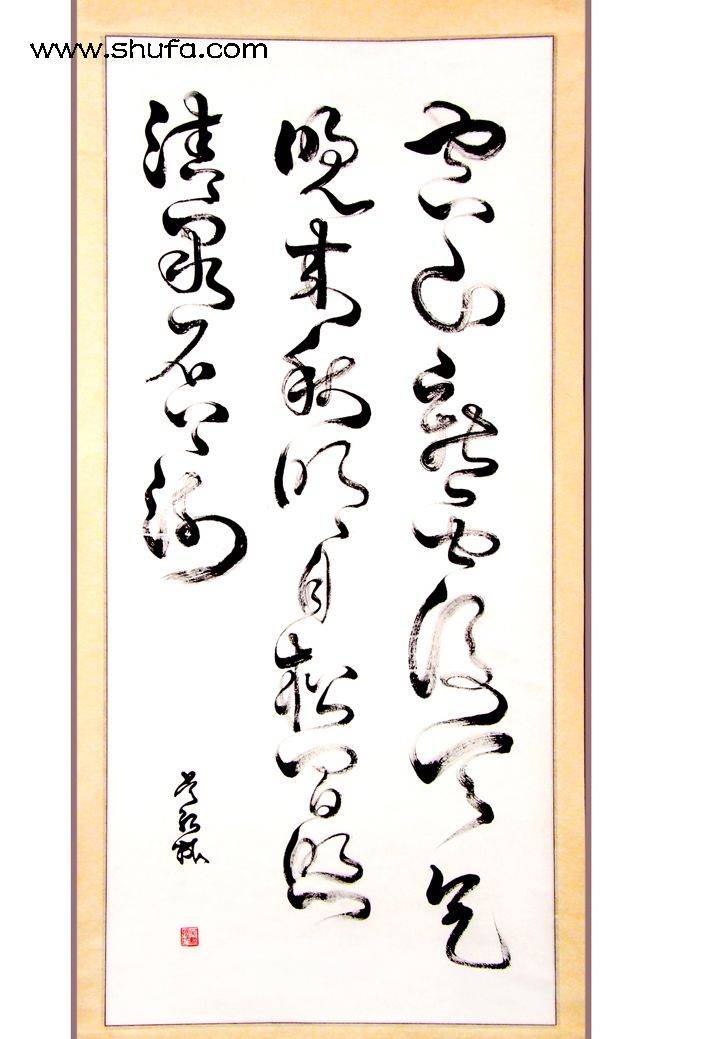 www.shufa.com
空山新雨後天氣
晚來秋明月松間照
清泉石上流